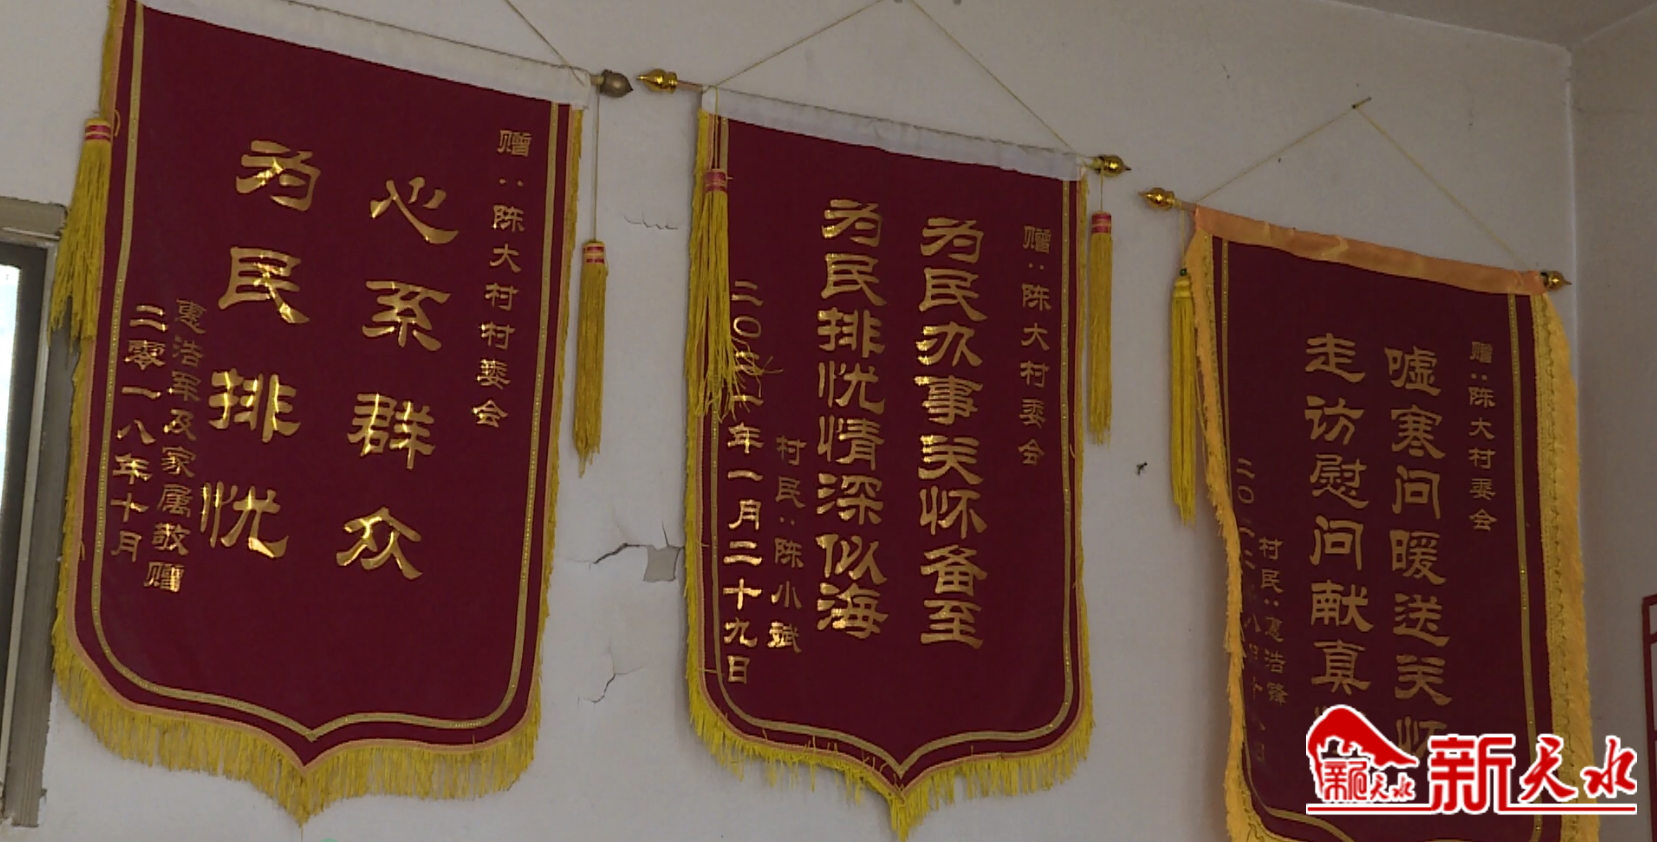 赠：陈大村村委会
心系群众
为民排忧
惠浩军及家属敬赠
二零一八年十月
赠：陈大村委会
为民办事关怀备至
为民排忧情深似海
村民：陈小斌
二〇二一年一月二十九日
赠：陈大村委会
嘘寒问暖送关怀
走访慰问献真
村民：惠浩锋
二〇二二年八月
新天水
新天水